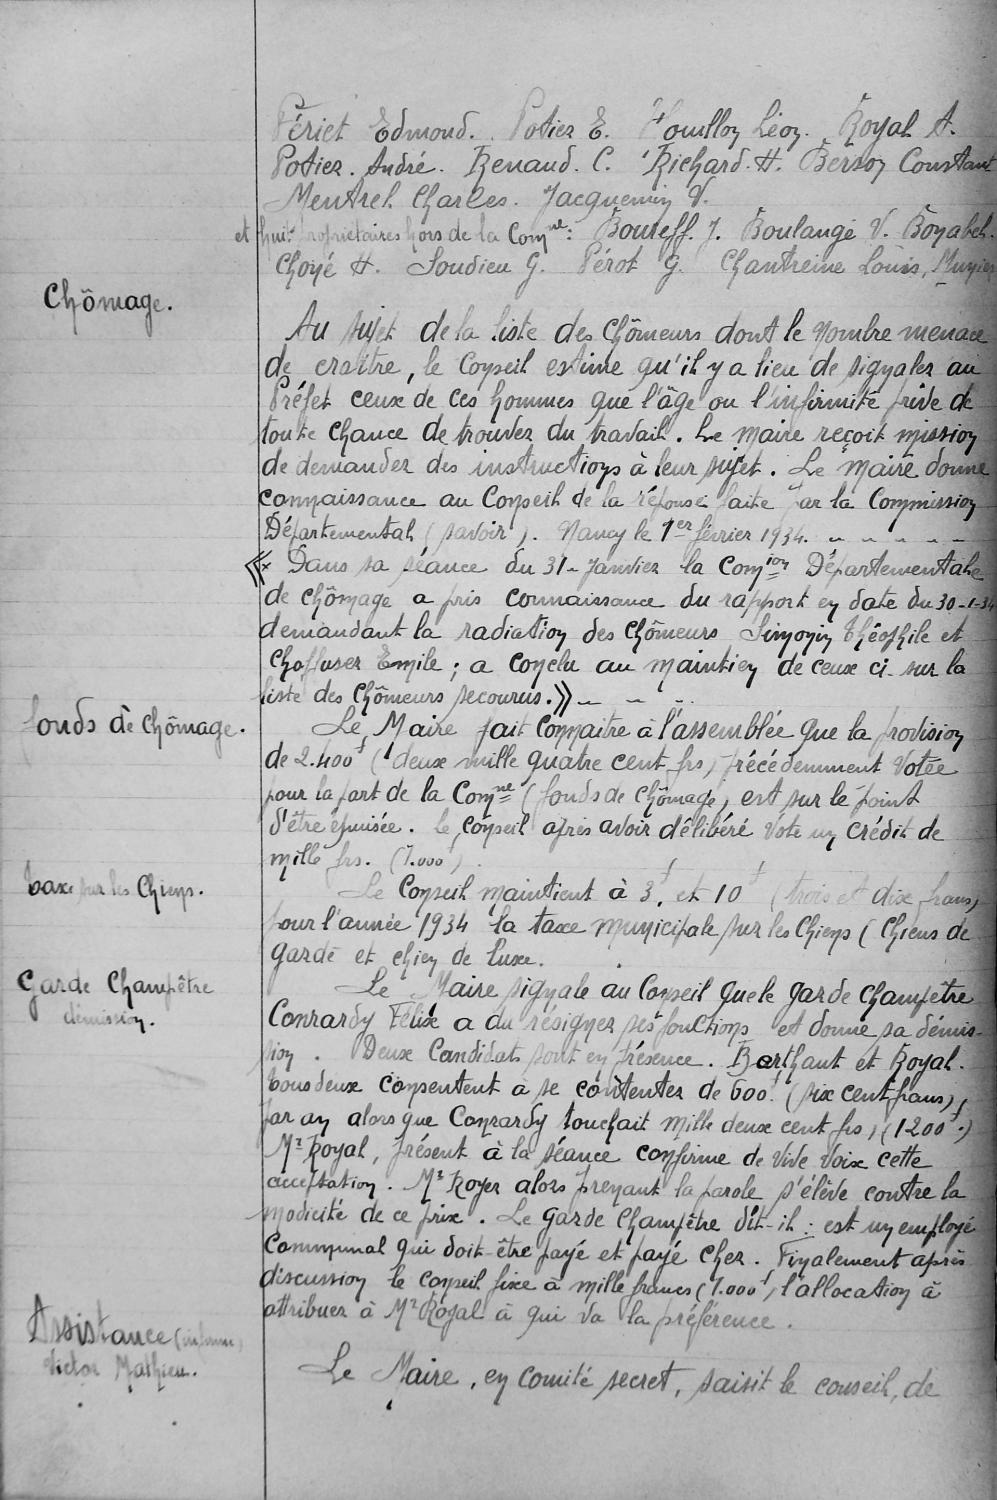 Fériet Edmond. Potier E. Houillon Léon. Royal A.
Potier. André. Renaud. C. Richard. H. Berson Constant
Mentrel Charles. Jacquemin V.
et huit propriétaires hors de la Comne: Bouteff. J. Boulangé V. Boyabel.
Choyé H. Soudieu G. Pérot G. Chantreine Louis,
Chômage.
Au sujet de la liste des Chômeurs dont le nombre menace
de craître, le Conseil estime qu'il y a lieu de signaler au
Préfet ceux de ces hommes que l'âge ou l'infirmité prive de
toute chance de trouver du travail. Le Maire reçoit mission
de demander des instructions à leur sujet. Le Maire donne
connaissance au Conseil de la réponse faite par la Commission
Départemental (savoir). Nancy le 1er février 1934.
« Dans sa séance du 31 Janvier la Comion Départementale
de chômage a pris connaissance du rapport en date du 30-1-34
demandant la radiation des chômeurs Simonin Théophile et
Choffaser Emile ; a conclu au maintien de ceux ci sur la
liste des Chômeurs secourus. »
fonds de chômage.
Le Maire fait connaitre à l'assemblée que la provision
de 2.400f (deux mille quatre cent frs) précédemment votée
pour la part de la Comne (fonds de chômage) est sur le point
d'être épuisée. Le Conseil après avoir délibéré vote un crédit de
mille frs. (1.000f).
taxe sur les Chiens.
Le Conseil maintient à 3f. et 10f (trois et dix frans)
pour l'année 1934 la taxe municipale sur les Chiens (Chiens de
garde et chien de luxe.
Garde Champêtre
démission.
Le Maire signale au Conseil que le garde champêtre
Conrardy Félix a du résigner ses fonctions et donne sa démis-
sion. Deux Candidats sont en présence. Barthaut et Royal.
tous deux consentent à se contenter de 600f. (six cent frans),
par an alors que Conrardy touchait mille deux cent frs, (1200f.)
Mr Royal, présent à la séance confirme de vive voix cette
acceptation. Mr Royer alors prenant la parole s'élève contre la
modicité de ce prix. Le garde Champêtre dit-il : est un employé
Communal qui doit être payé et payé cher. Finalement après
discussion le conseil fixe à mille francs (1.000f) l'allocation à
attribuer à Mr Royal à qui va la préférence.
Assistance (infirme)
Victor Mathieu.
Le Maire, en comité secret, saisit le conseil, de